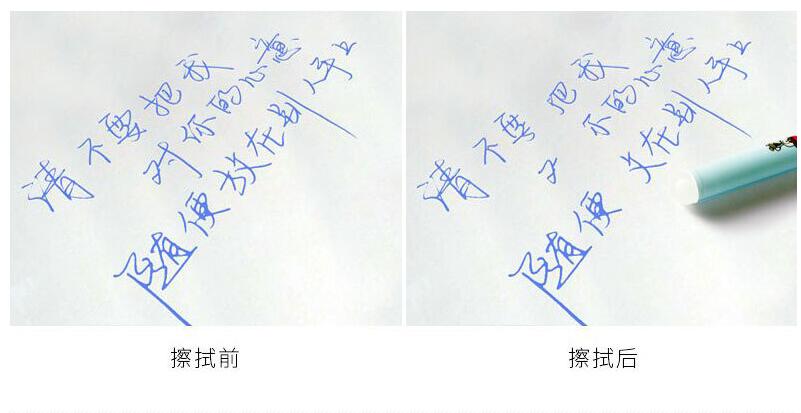 请不要把我
对你的心意
随便放在别人手上
请不要巴我
尔的心意
随便 在别人手上
擦拭前
擦拭后